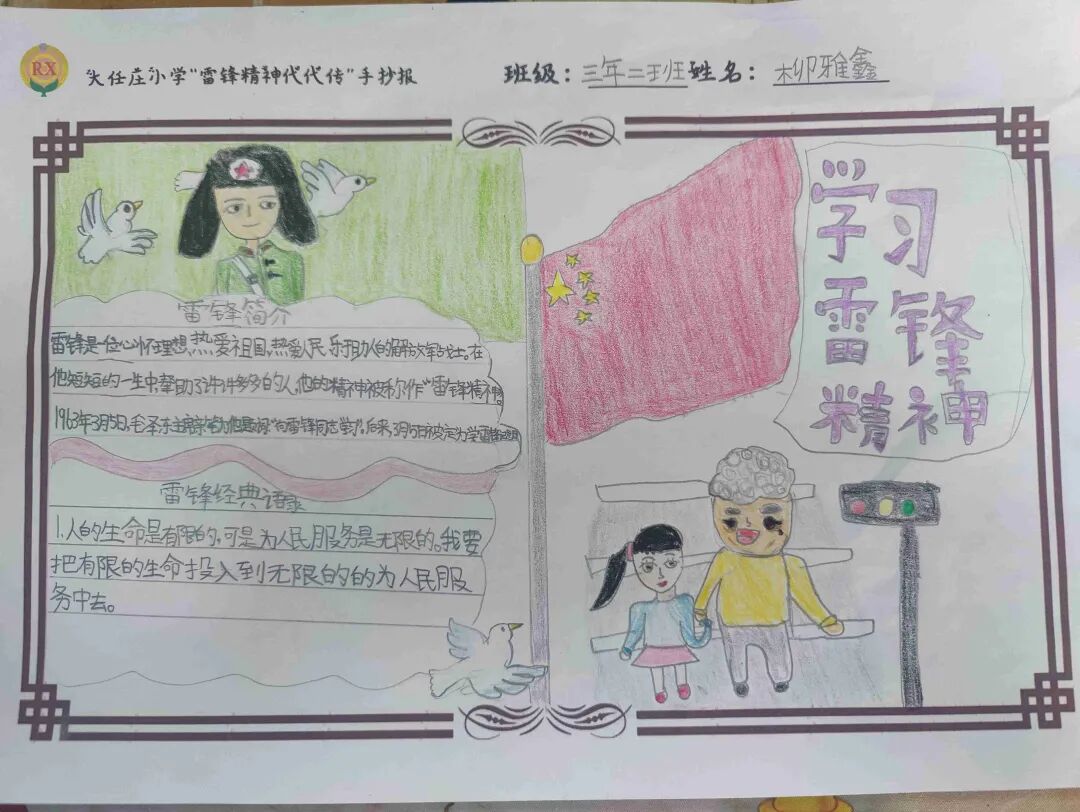 RX
"大任庄"小学"雷锋精神代代传"手抄报
班级：三年二班姓名：柳雅鑫
雷锋简介
雷锋是一位心怀理想,热爱祖国,热爱人民,乐于助人的解放军战士。在
他短短的一生中帮助了许许多多的人,他的精神被称作"雷锋精神"。
1963年3月5日,毛泽东主席亲笔为他题词"向雷锋同志学习",后来,3月5日被定为学雷锋
雷锋经典语录
1.人的生命是有限的,可是为人民服务是无限的。我要
把有限的生命投入到无限的的为人民服
务中去。
学习
雷锋
精神